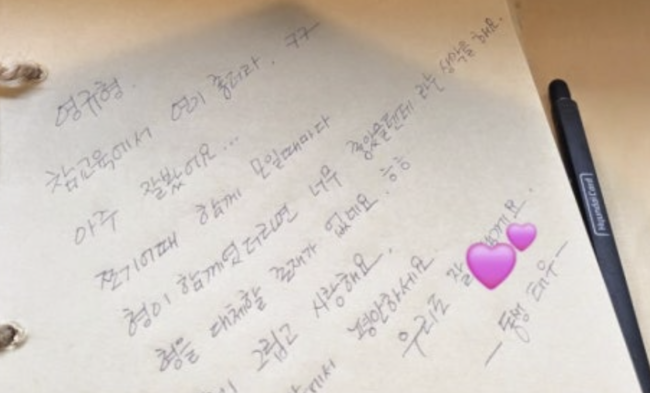 영규형.
참교육에서 연기 좋더라. ㅋㅋ
아주 잘봤어요...
쫑기어때 함께 모일때마다
형이 함께였더라면 너무 좋았을텐데 라는 생각을 해요.
형을 대체할 존재가 없네요. ㅎㅎ
그립고 사랑해요.
에서 평안하세요
우리도 잘
- 동생 태우 -
Hyundai Card